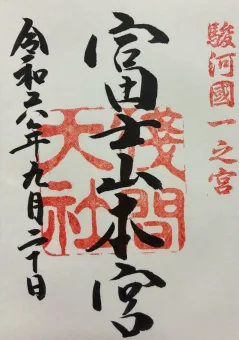 駿河國一之宮
富士山本宮
淺間大社
令和六年九月二十日